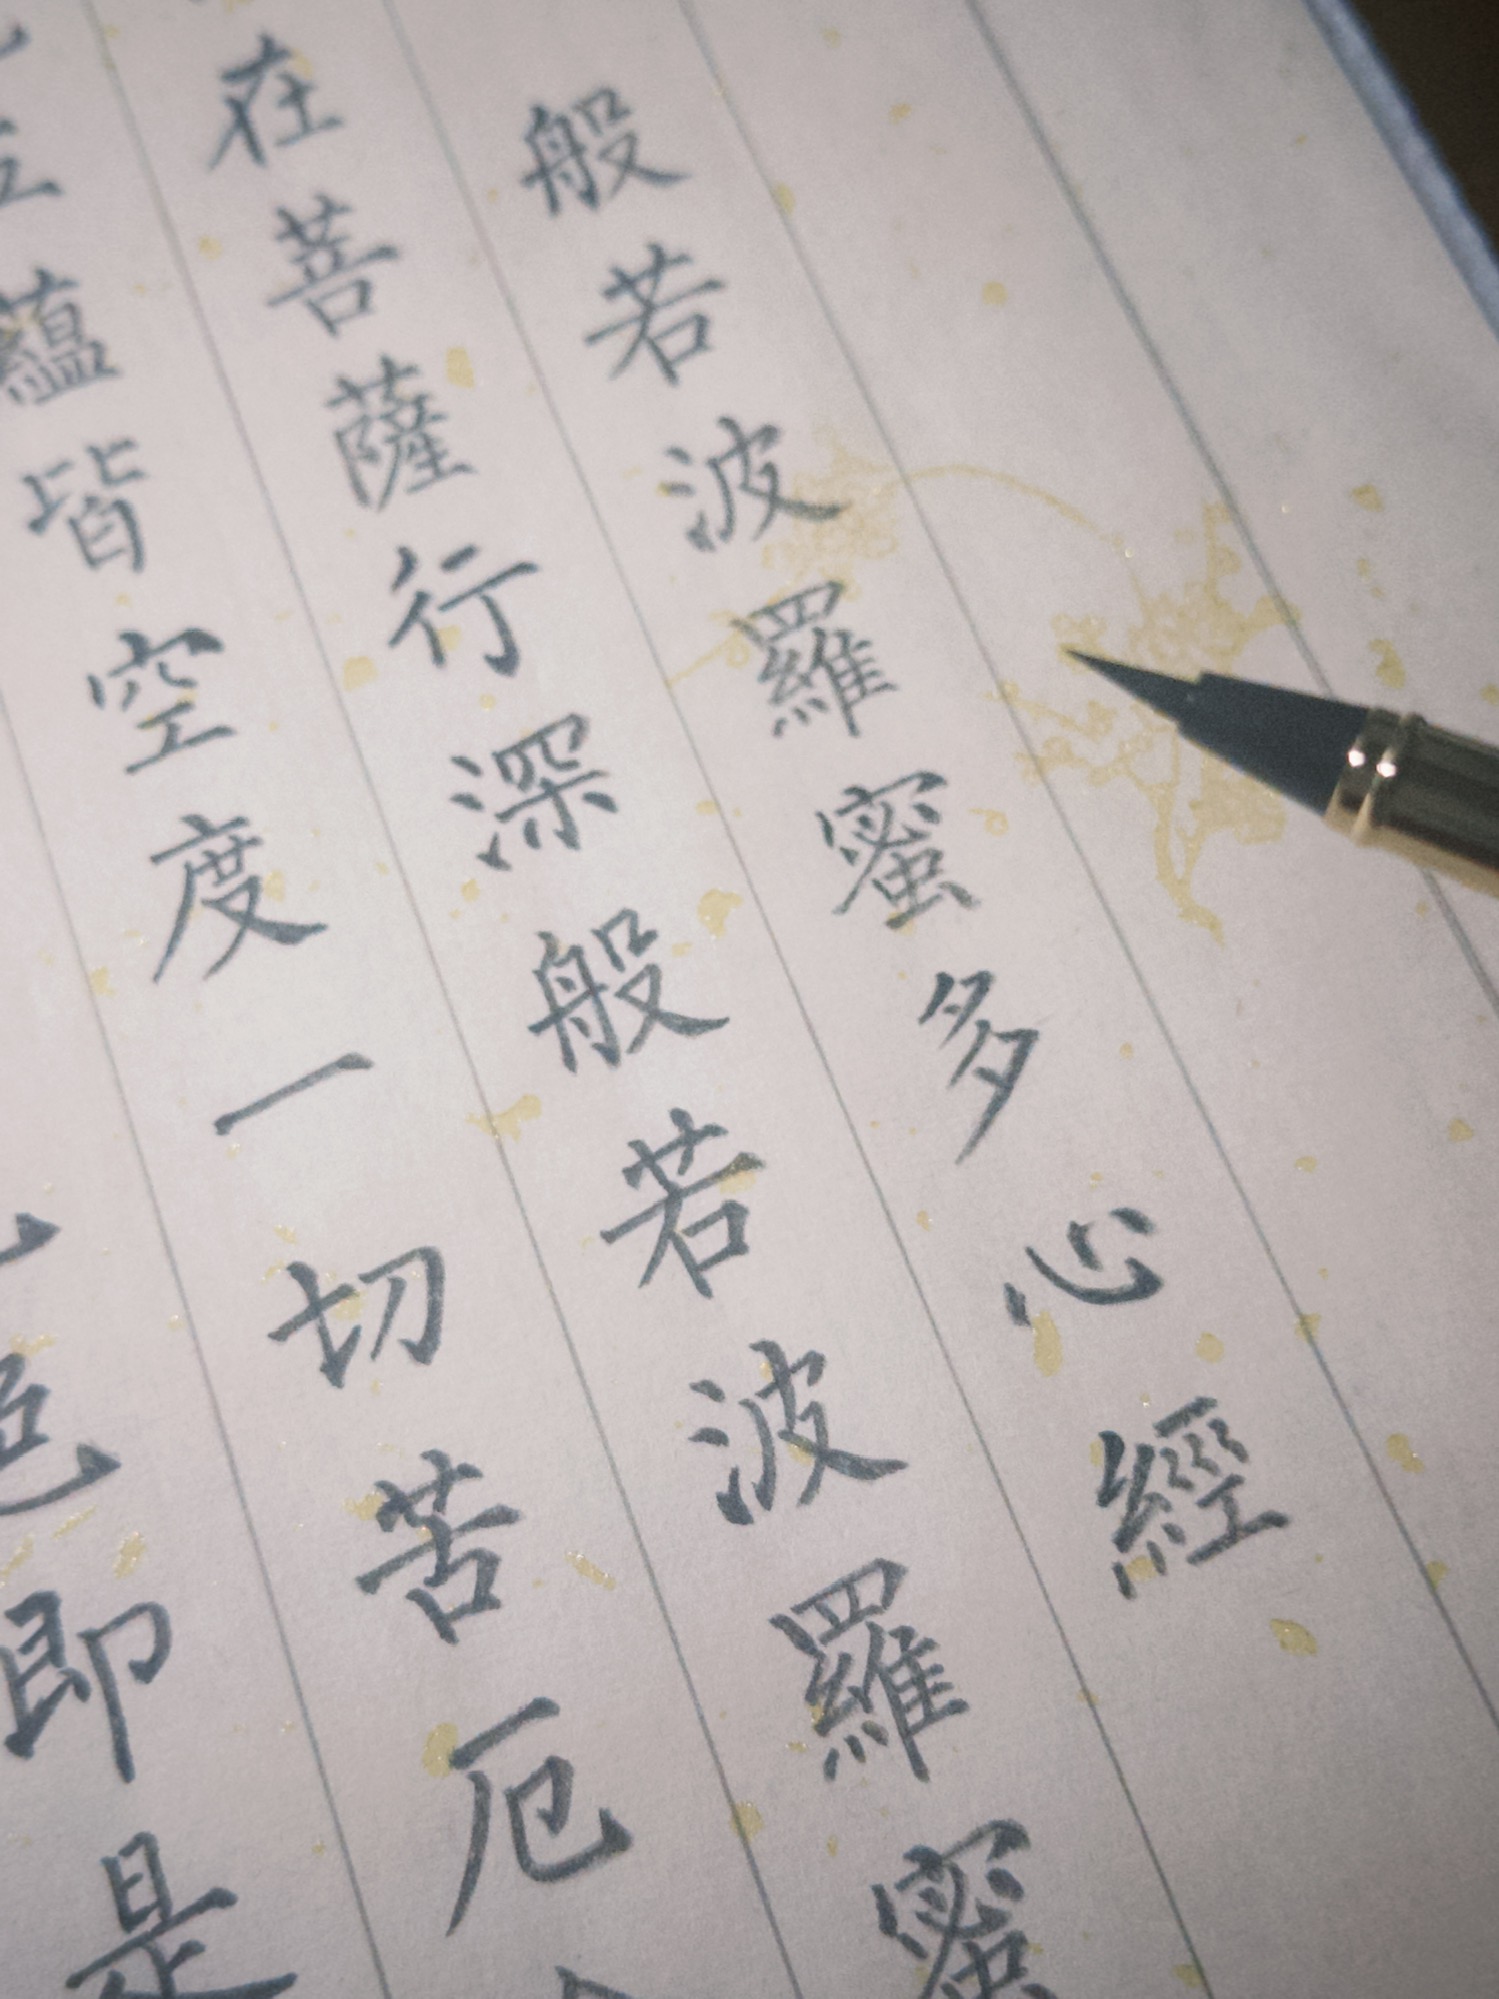 般若波羅蜜多心經
在菩薩行深般若波羅蜜
五蘊皆空度一切苦厄
色即是